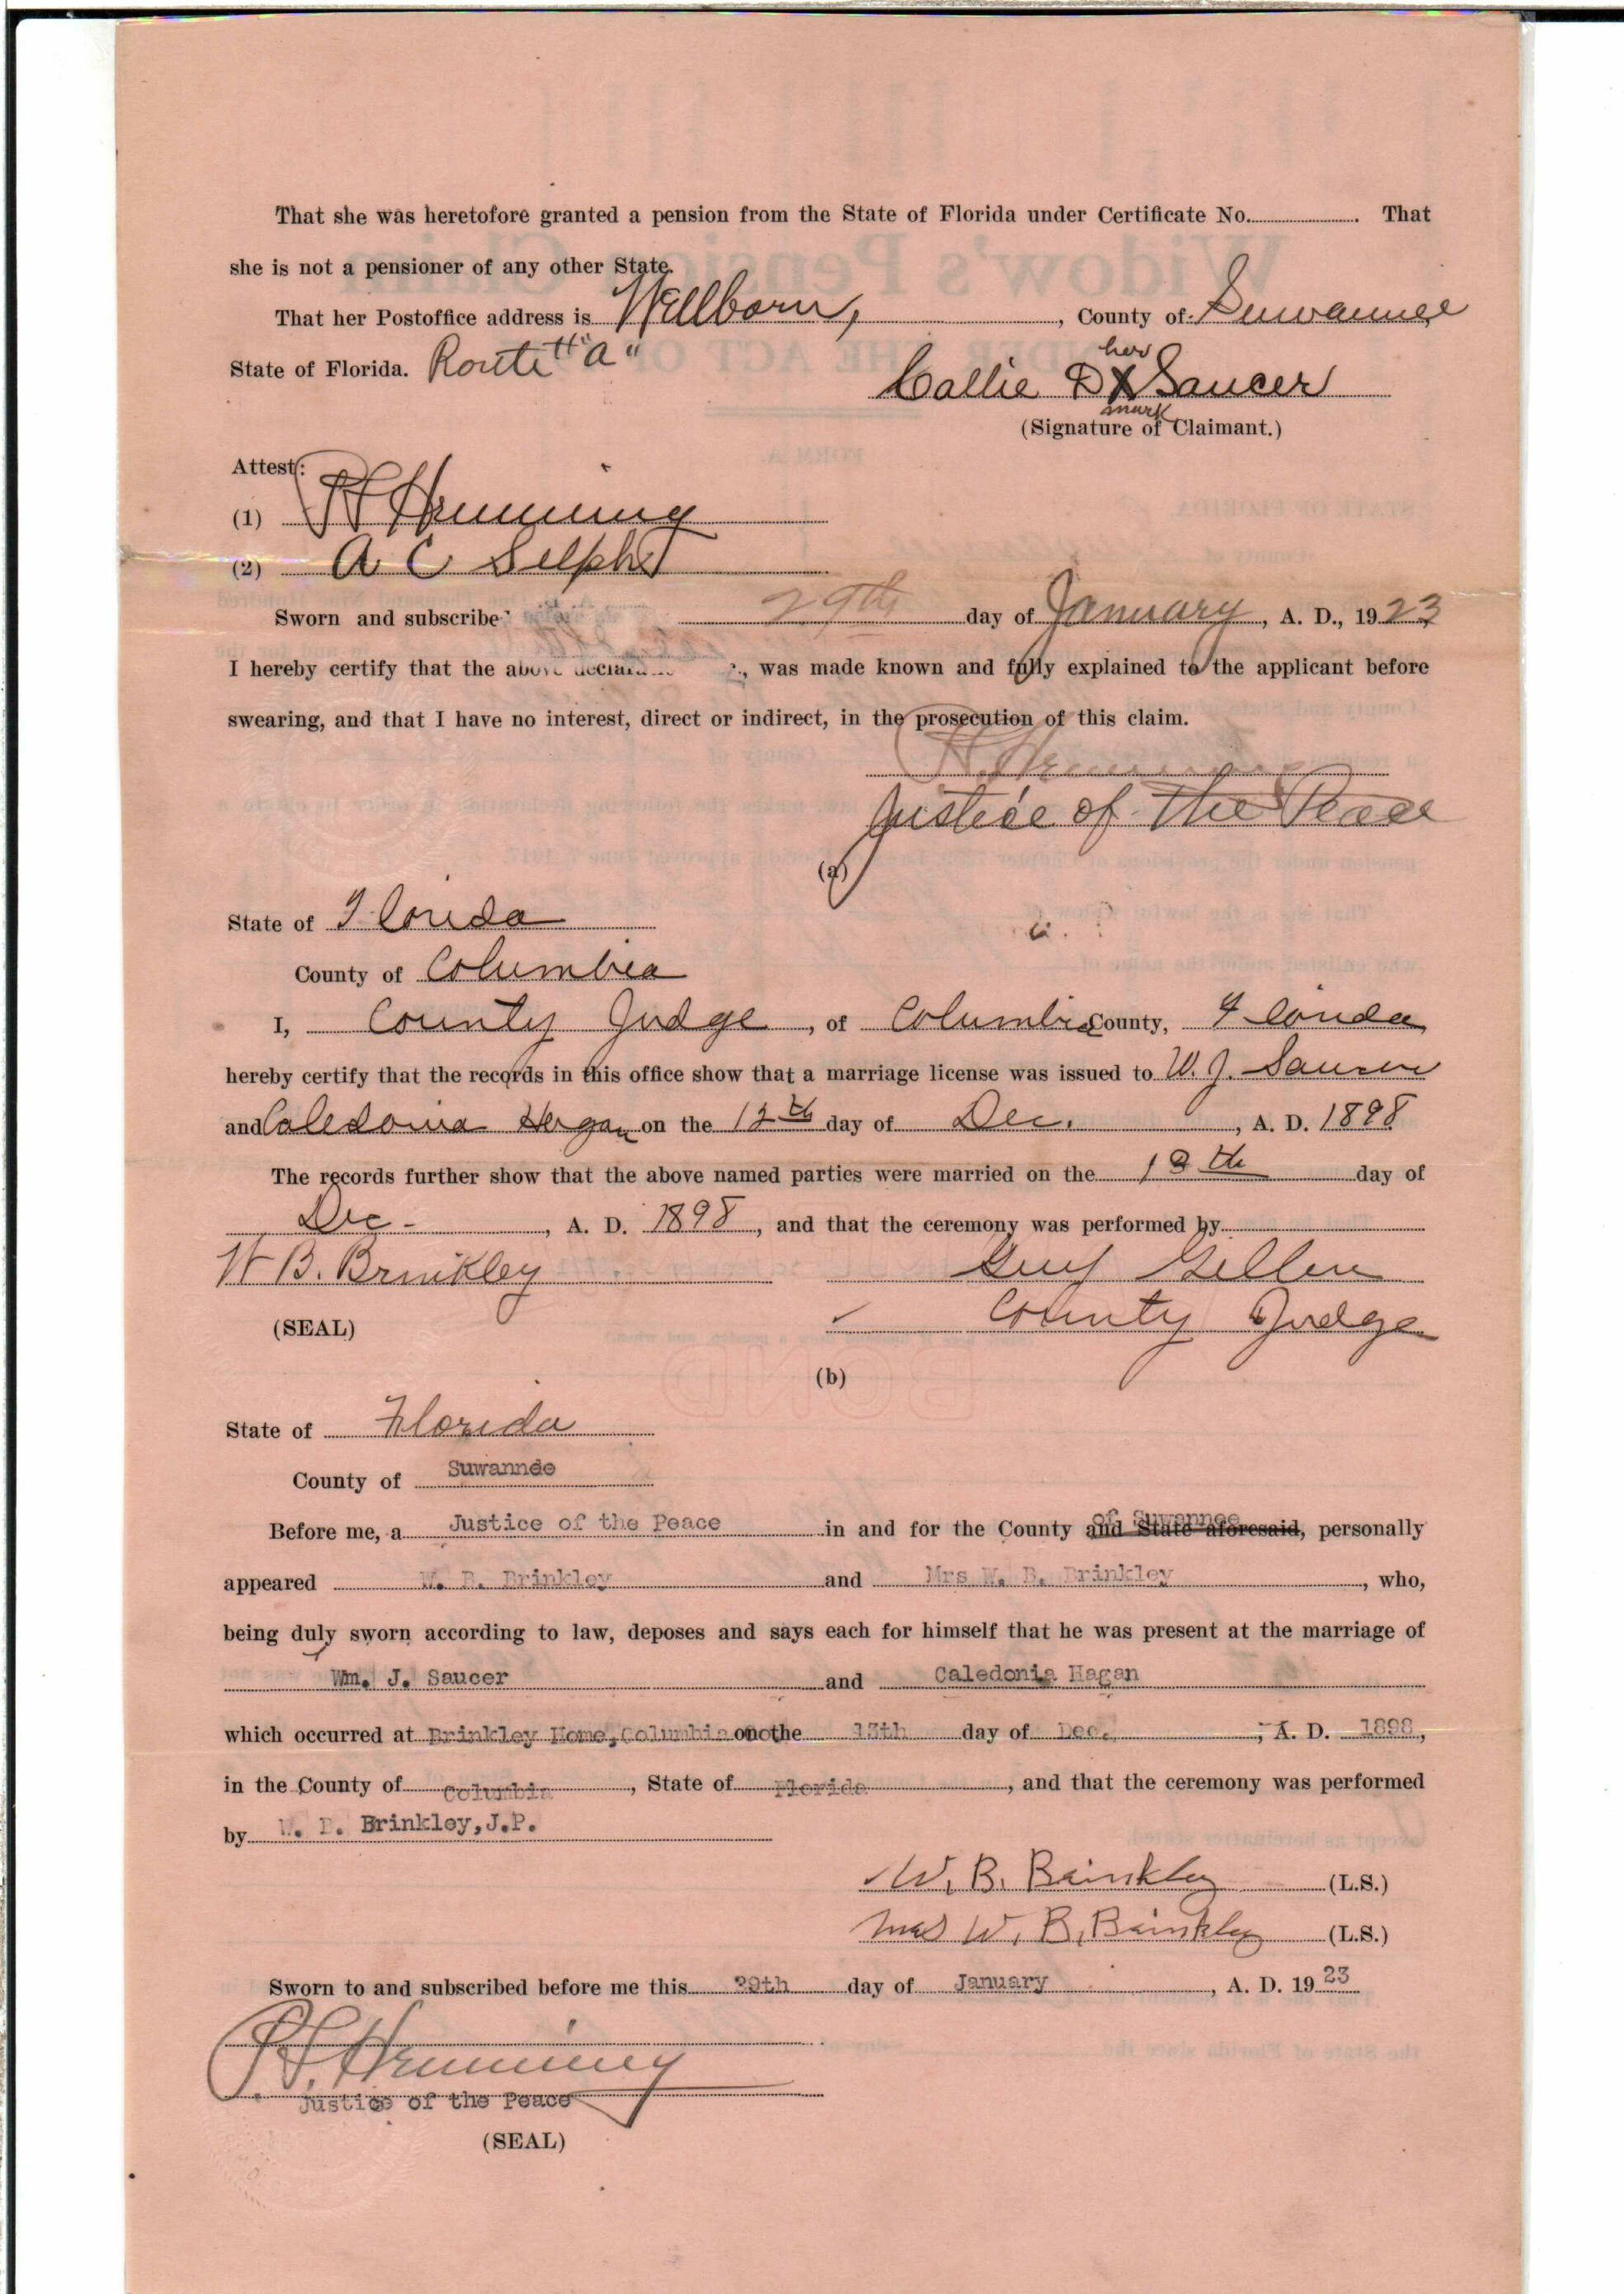 That she was heretofore granted a pension from the State of Florida under Certificate No. . That
she is not a pensioner of any other State.
That her Postoffice address is Wellborn, , County of Suwannee
State of Florida. Route "a"
her
Callie D X Saucer
mark
(Signature of Claimant.)
Attest:
(1) Hemming
(2) A C Selph
Sworn and subscribe 29th day of January, A. D., 1923
I hereby certify that the above , was made known and fully explained to the applicant before
swearing, and that I have no interest, direct or indirect, in the prosecution of this claim.
Hemming
Justice of the Peace
(a)
State of Florida
County of Columbia
I, County Judge, of Columbia County, Florida,
hereby certify that the records in this office show that a marriage license was issued to W. J. Saucer
and Caledonia on the 12th day of Dec. , A. D. 1898
The records further show that the above named parties were married on the th day of
Dec- , A. D. 1898, and that the ceremony was performed by
W B. Brinkley Guy Gillen
(SEAL) County Judge
(b)
State of Florida
County of Suwannee
of Suwannee
Before me, a Justice of the Peace in and for the County and State aforesaid, personally
appeared W. B. Brinkley and Mrs W. B. Brinkley , who,
being duly sworn according to law, deposes and says each for himself that he was present at the marriage of
Wm. J. Saucer and Caledonia Hagan
which occurred at Brinkley Home, Columbia co on the 13th day of Dec. , A. D. 1898,
in the County of Columbia , State of Florida , and that the ceremony was performed
by W. B. Brinkley, J.P.
W. B. Brinkley (L.S.)
Mrs W. B. Brinkley (L.S.)
Sworn to and subscribed before me this 29th day of January , A. D. 1923
Hemming
Justice of the Peace
(SEAL)